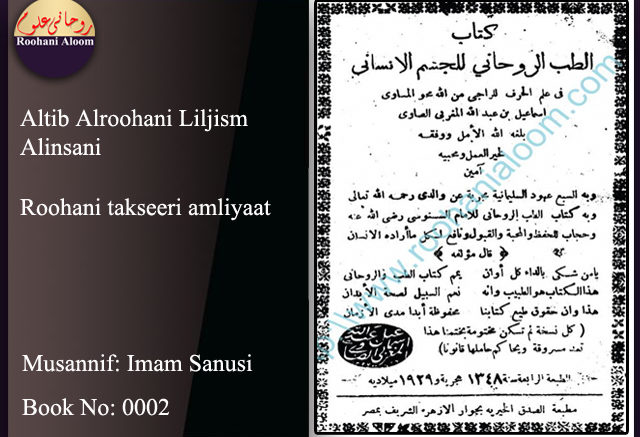 روحانی علوم
Roohani Aloom
Altib Alroohani Liljism
Alinsani
Roohani takseeri amliyaat
Musannif: Imam Sanusi
Book No: 0002
كتاب
الطب الروحاني للجسم الانسانى
فى علم الحرف للراجى من الله محو المساوى
اسماعيل بن عبد الله المغربى الصاوى
بلغه الله الأمل ووفقه
لخير العمل ومحبيه
آمين
وبه السبع عهود السليمانية مجربة عن والدى رحمه الله تعالى
وبه كتاب الطب الروحانى للامام السنوسى رضى الله عنه
وحجاب للحفظ والمحبة والقبول ونافع لكل ما أراده الانسان
﴿ قال مؤلفه ﴾
يامن شكى بالداء كل أوان يمم كتاب الطب والروحانى
هذا الكتاب هو الطبيب وانه نعم السبيل لصحة الأبدان
هذا وان حقوق طبع كتابنا محفوظة أبدا مدى الازمان
( كل نسخة لم تكن مختومة بختمنا هذا
تعد مسروقة ويحاكم حاملها قانونا )
الطبعة الرابعة سنة ١٣٤٨ هجرية و ١٩٢٩ ميلاديه
مطبعة الصدق الخيريه بجوار الازهر الشريف بمصر
www.roohanialoom.com